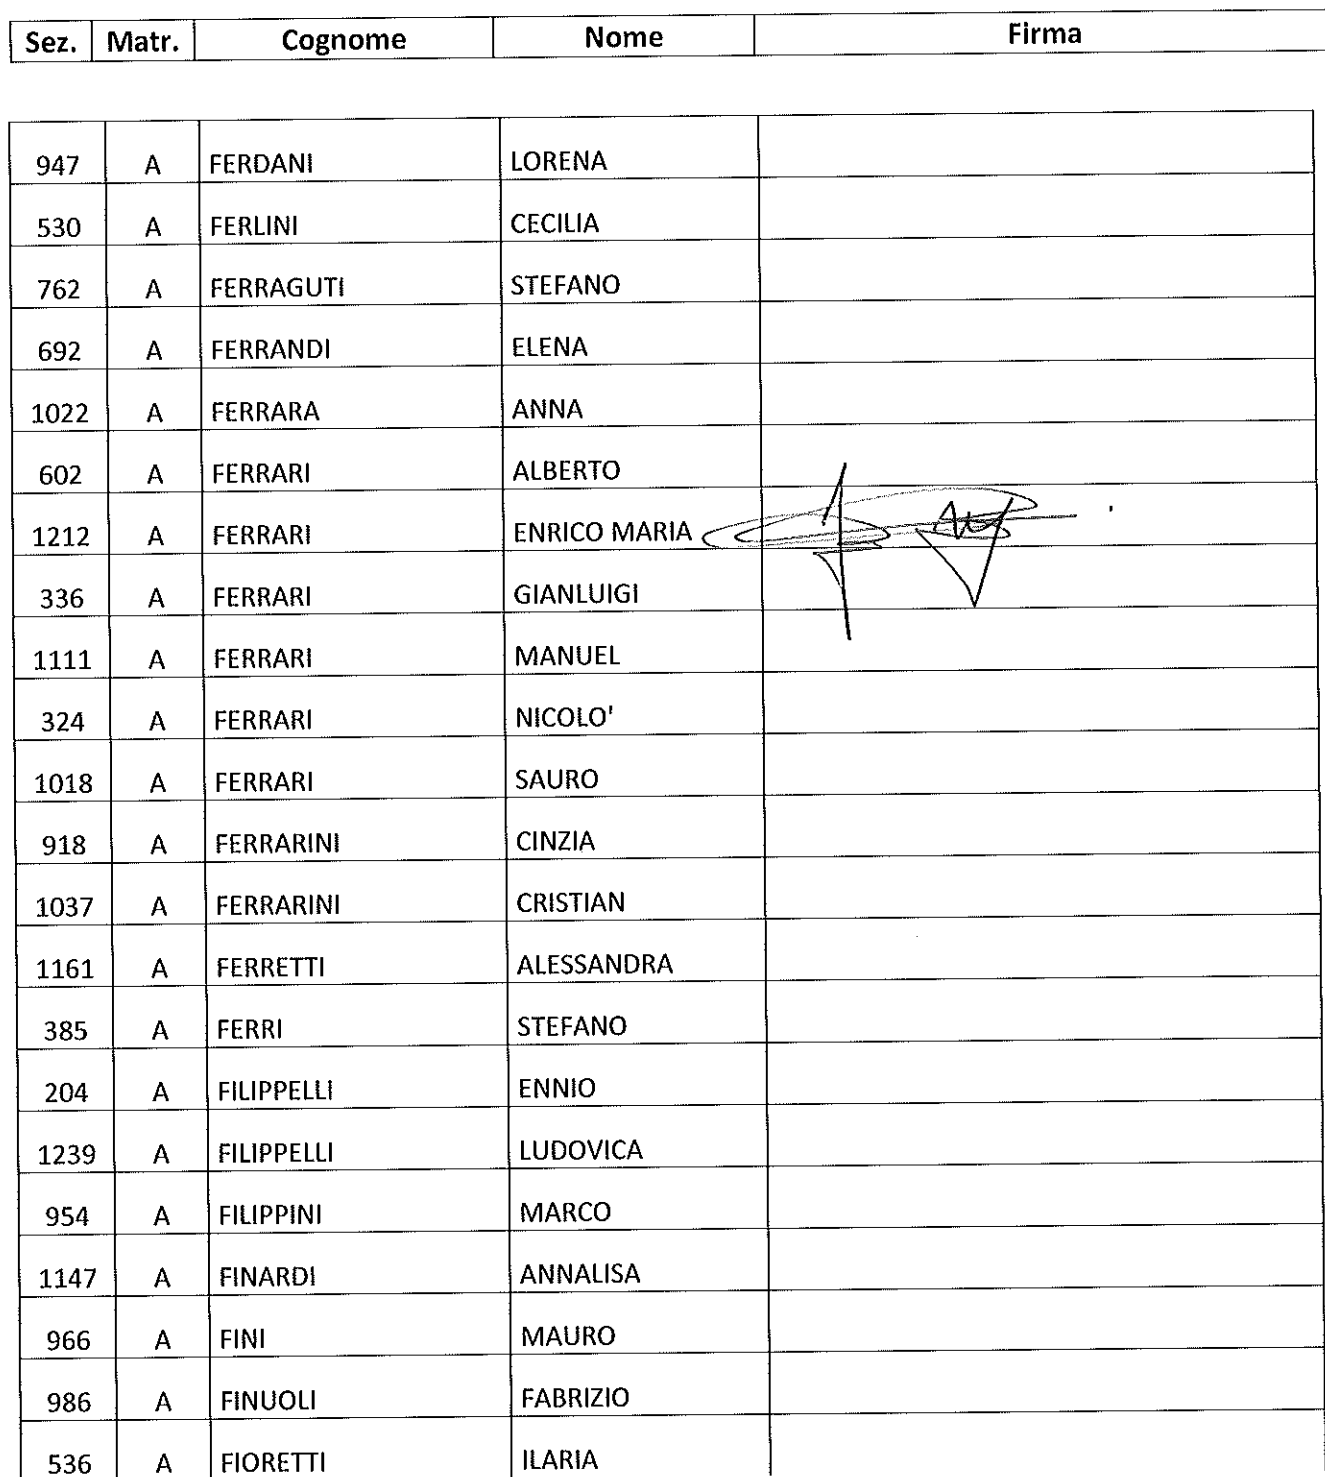 Sez. Matr. Cognome Nome Firma
947 A FERDANI LORENA
530 A FERLINI CECILIA
762 A FERRAGUTI STEFANO
692 A FERRANDI ELENA
1022 A FERRARA ANNA
602 A FERRARI ALBERTO
1212 A FERRARI ENRICO MARIA
336 A FERRARI GIANLUIGI
1111 A FERRARI MANUEL
324 A FERRARI NICOLO'
1018 A FERRARI SAURO
918 A FERRARINI CINZIA
1037 A FERRARINI CRISTIAN
1161 A FERRETTI ALESSANDRA
385 A FERRI STEFANO
204 A FILIPPELLI ENNIO
1239 A FILIPPELLI LUDOVICA
954 A FILIPPINI MARCO
1147 A FINARDI ANNALISA
966 A FINI MAURO
986 A FINUOLI FABRIZIO
536 A FIORETTI ILARIA